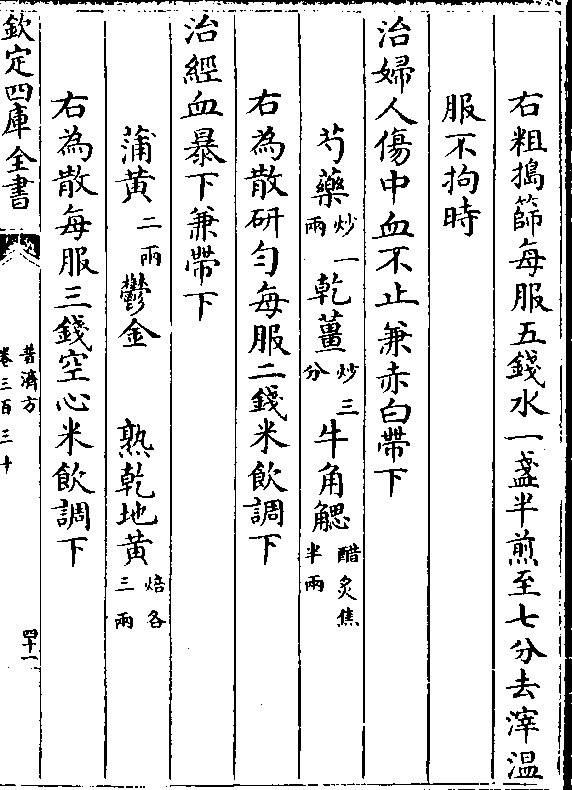 右粗搗篩每服五錢水一盞半煎至七分去滓温
服不拘時
治婦人傷中血不止兼赤白帶下
芍藥炒一兩 乾薑炒三分 牛角䚡醋炙焦半兩
右為散研勻每服二錢米飲調下
治經血暴下兼帶下
蒲黄二兩 鬱金 熟乾地黄焙各三兩
右為散每服三錢空心米飲調下
欽定四庫全書
普濟方
卷三百三十
四十一